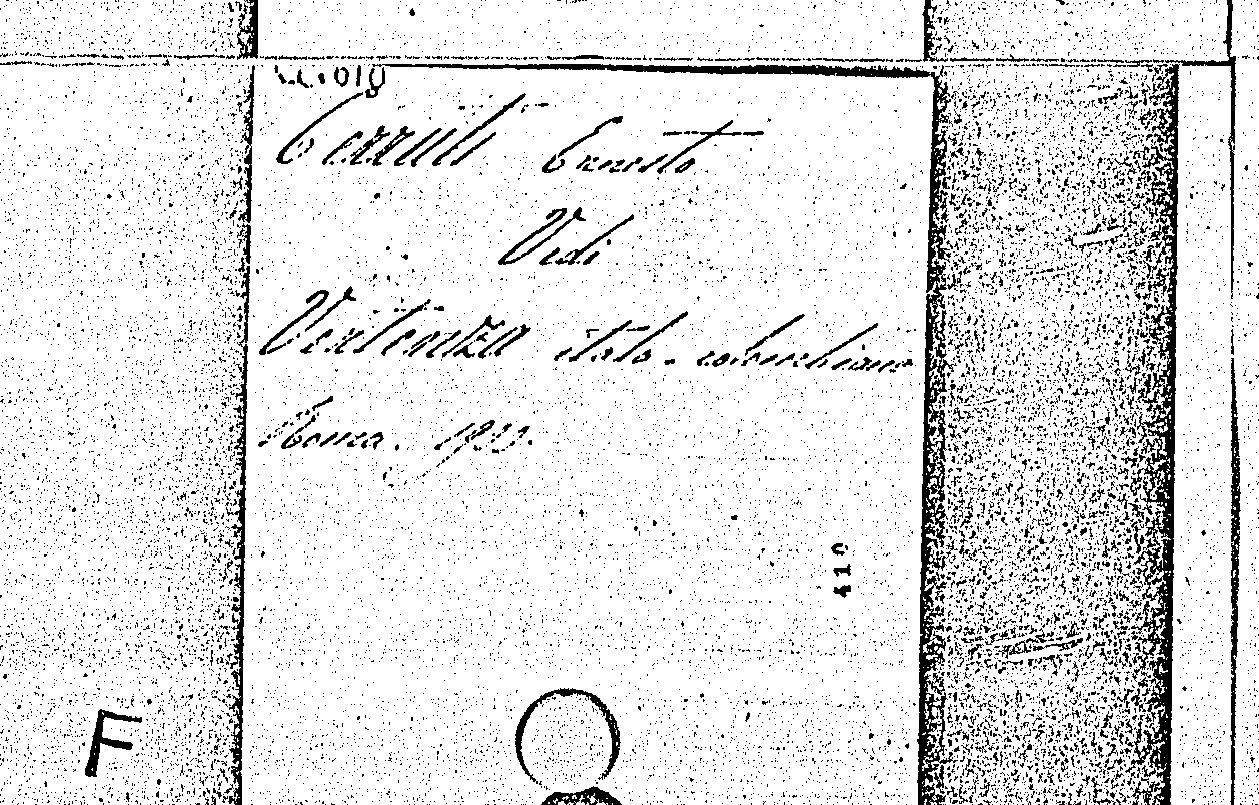 Cerruti Ernesto
Vedi
Vertenza italo-colombiana
Roma.
410
F